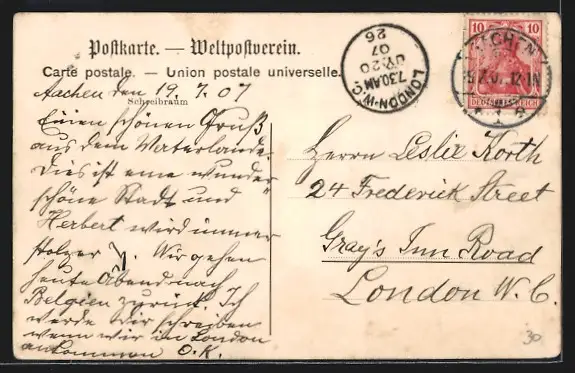 Postkarte. — Weltpostverein.
Carte postale. — Union postale universelle.
Schreibraum
Aachen den 19.7.07
Einen schönen Gruß
aus dem Vaterlande.
Dies ist eine wunder
schöne Stadt und
Herbert wird immer
stolzer. Wir gehen
heute Abend nach
Belgien zurück. Ich
werde dir schreiben
wenn wir in London
ankommen O.K.
LONDON.W.C.
7.30AM
JY 20
07
26
10 10
DEUTSCHES REICH
AACHEN
Herrn Leslie Korth
24 Frederick Street
Gray's Inn Road
London W.C.
30